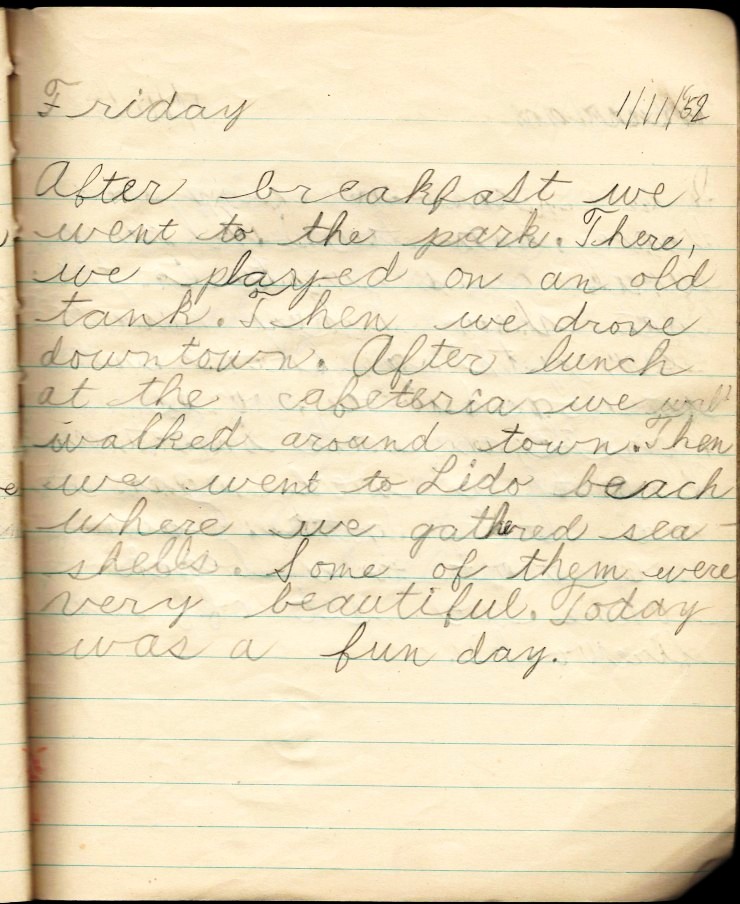 Friday 1/11/52
After breakfast we
went to the park. There,
we played on an old
tank. Then we drove
downtown. After lunch
at the cafeteria we
walked around town. Then
we went to Lido beach
where we gathered sea-
shells. Some of them were
very beautiful. Today
was a fun day.